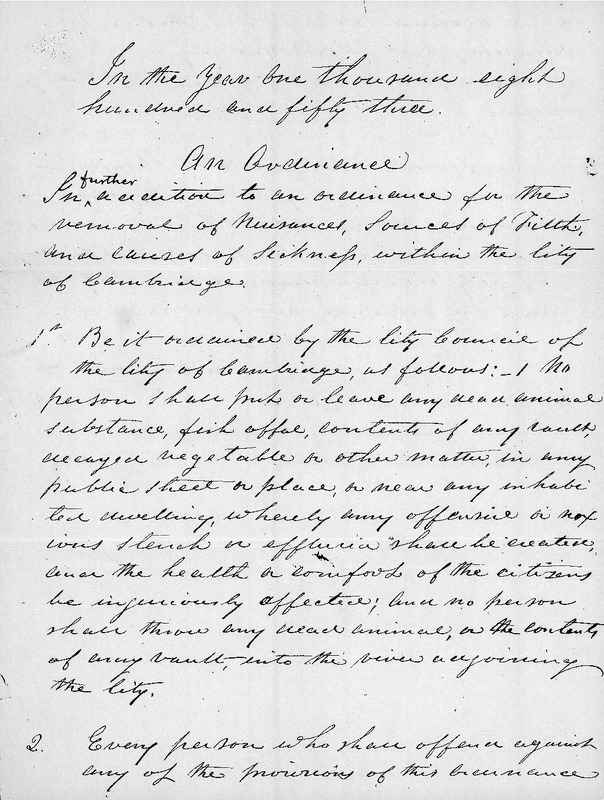 In the Year One thousand eight
hundred and fifty three.
An Ordinance
further
In addition to an ordinance for the
removal of Nuisances, Sources of Filth,
and causes of Sickness, within the city
of Cambridge.
1st Be it ordained by the City Council of
the City of Cambridge, as follows:- 1 No
person shall put or leave any dead animal
substance, fish offal, contents of any vault,
decayed vegetable or other matter, in any
public street or place, or near any inhabi
ted dwelling, whereby any offensive or nox
ious stench or effluvia shall be created,
and the health or comfort of the citizens
be injuriously affected; and no person
shall throw any dead animal, or the contents
of any vault, into the river adjoining
the City.
2. Every person who shall offend against
any of the provisions of this ordinance